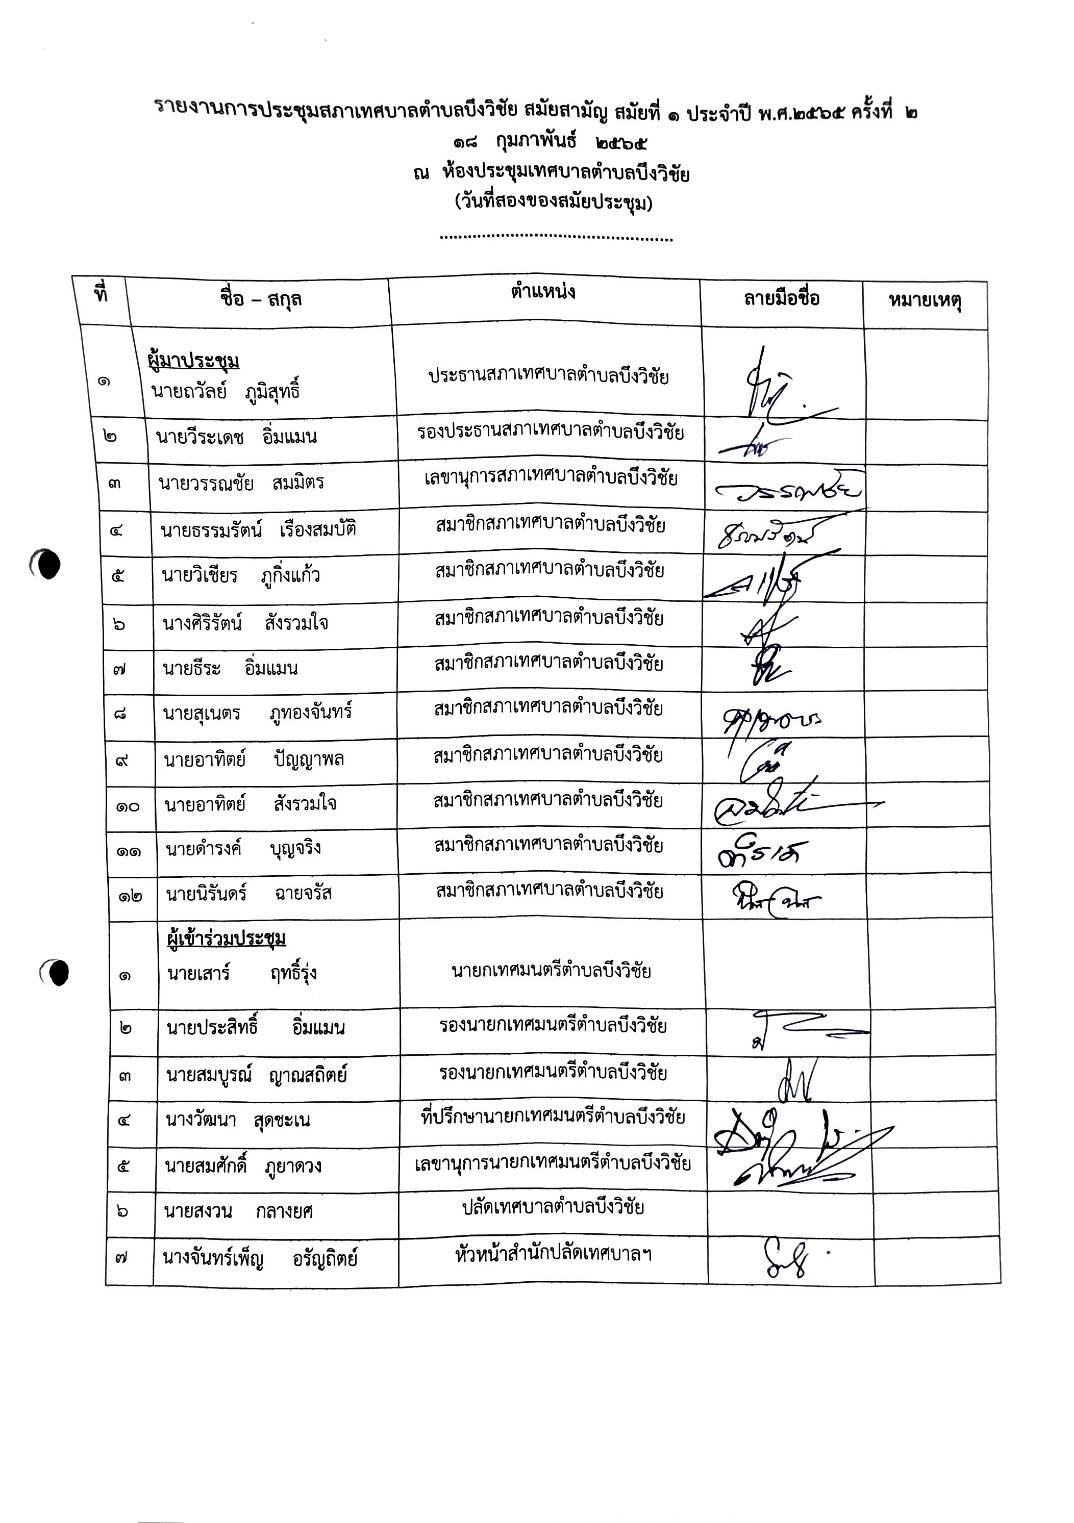 รายงานการประชุมสภาเทศบาลตำบลบึงวิชัย สมัยสามัญ สมัยที่ ๑ ประจำปี พ.ศ.๒๕๖๕ ครั้งที่ ๒
๑๘ กุมภาพันธ์ ๒๕๖๕
ณ ห้องประชุมเทศบาลตำบลบึงวิชัย
(วันที่สองของสมัยประชุม)
..................................................
ที่ ชื่อ – สกุล ตำแหน่ง ลายมือชื่อ หมายเหตุ
ผู้มาประชุม
๑ นายถวัลย์ ภูมิสุทธิ์ ประธานสภาเทศบาลตำบลบึงวิชัย
๒ นายวีระเดช อิ่มแมน รองประธานสภาเทศบาลตำบลบึงวิชัย
๓ นายวรรณชัย สมมิตร เลขานุการสภาเทศบาลตำบลบึงวิชัย วรรณชัย
๔ นายธรรมรัตน์ เรืองสมบัติ สมาชิกสภาเทศบาลตำบลบึงวิชัย ธรรมรัตน์
๕ นายวิเชียร ภูกิ่งแก้ว สมาชิกสภาเทศบาลตำบลบึงวิชัย
๖ นางศิริรัตน์ สังรวมใจ สมาชิกสภาเทศบาลตำบลบึงวิชัย
๗ นายธีระ อิ่มแมน สมาชิกสภาเทศบาลตำบลบึงวิชัย
๘ นายสุเนตร ภูทองจันทร์ สมาชิกสภาเทศบาลตำบลบึงวิชัย
๙ นายอาทิตย์ ปัญญาพล สมาชิกสภาเทศบาลตำบลบึงวิชัย
๑๐ นายอาทิตย์ สังรวมใจ สมาชิกสภาเทศบาลตำบลบึงวิชัย
๑๑ นายดำรงค์ บุญจริง สมาชิกสภาเทศบาลตำบลบึงวิชัย
๑๒ นายนิรันดร์ ฉายจรัส สมาชิกสภาเทศบาลตำบลบึงวิชัย
ผู้เข้าร่วมประชุม
๑ นายเสาร์ ฤทธิ์รุ่ง นายกเทศมนตรีตำบลบึงวิชัย
๒ นายประสิทธิ์ อิ่มแมน รองนายกเทศมนตรีตำบลบึงวิชัย
๓ นายสมบูรณ์ ญาณสถิตย์ รองนายกเทศมนตรีตำบลบึงวิชัย
๔ นางวัฒนา สุดชะเน ที่ปรึกษานายกเทศมนตรีตำบลบึงวิชัย
๕ นายสมศักดิ์ ภูยาดวง เลขานุการนายกเทศมนตรีตำบลบึงวิชัย
๖ นายสงวน กลางยศ ปลัดเทศบาลตำบลบึงวิชัย
๗ นางจันทร์เพ็ญ อรัญถิตย์ หัวหน้าสำนักปลัดเทศบาลฯ